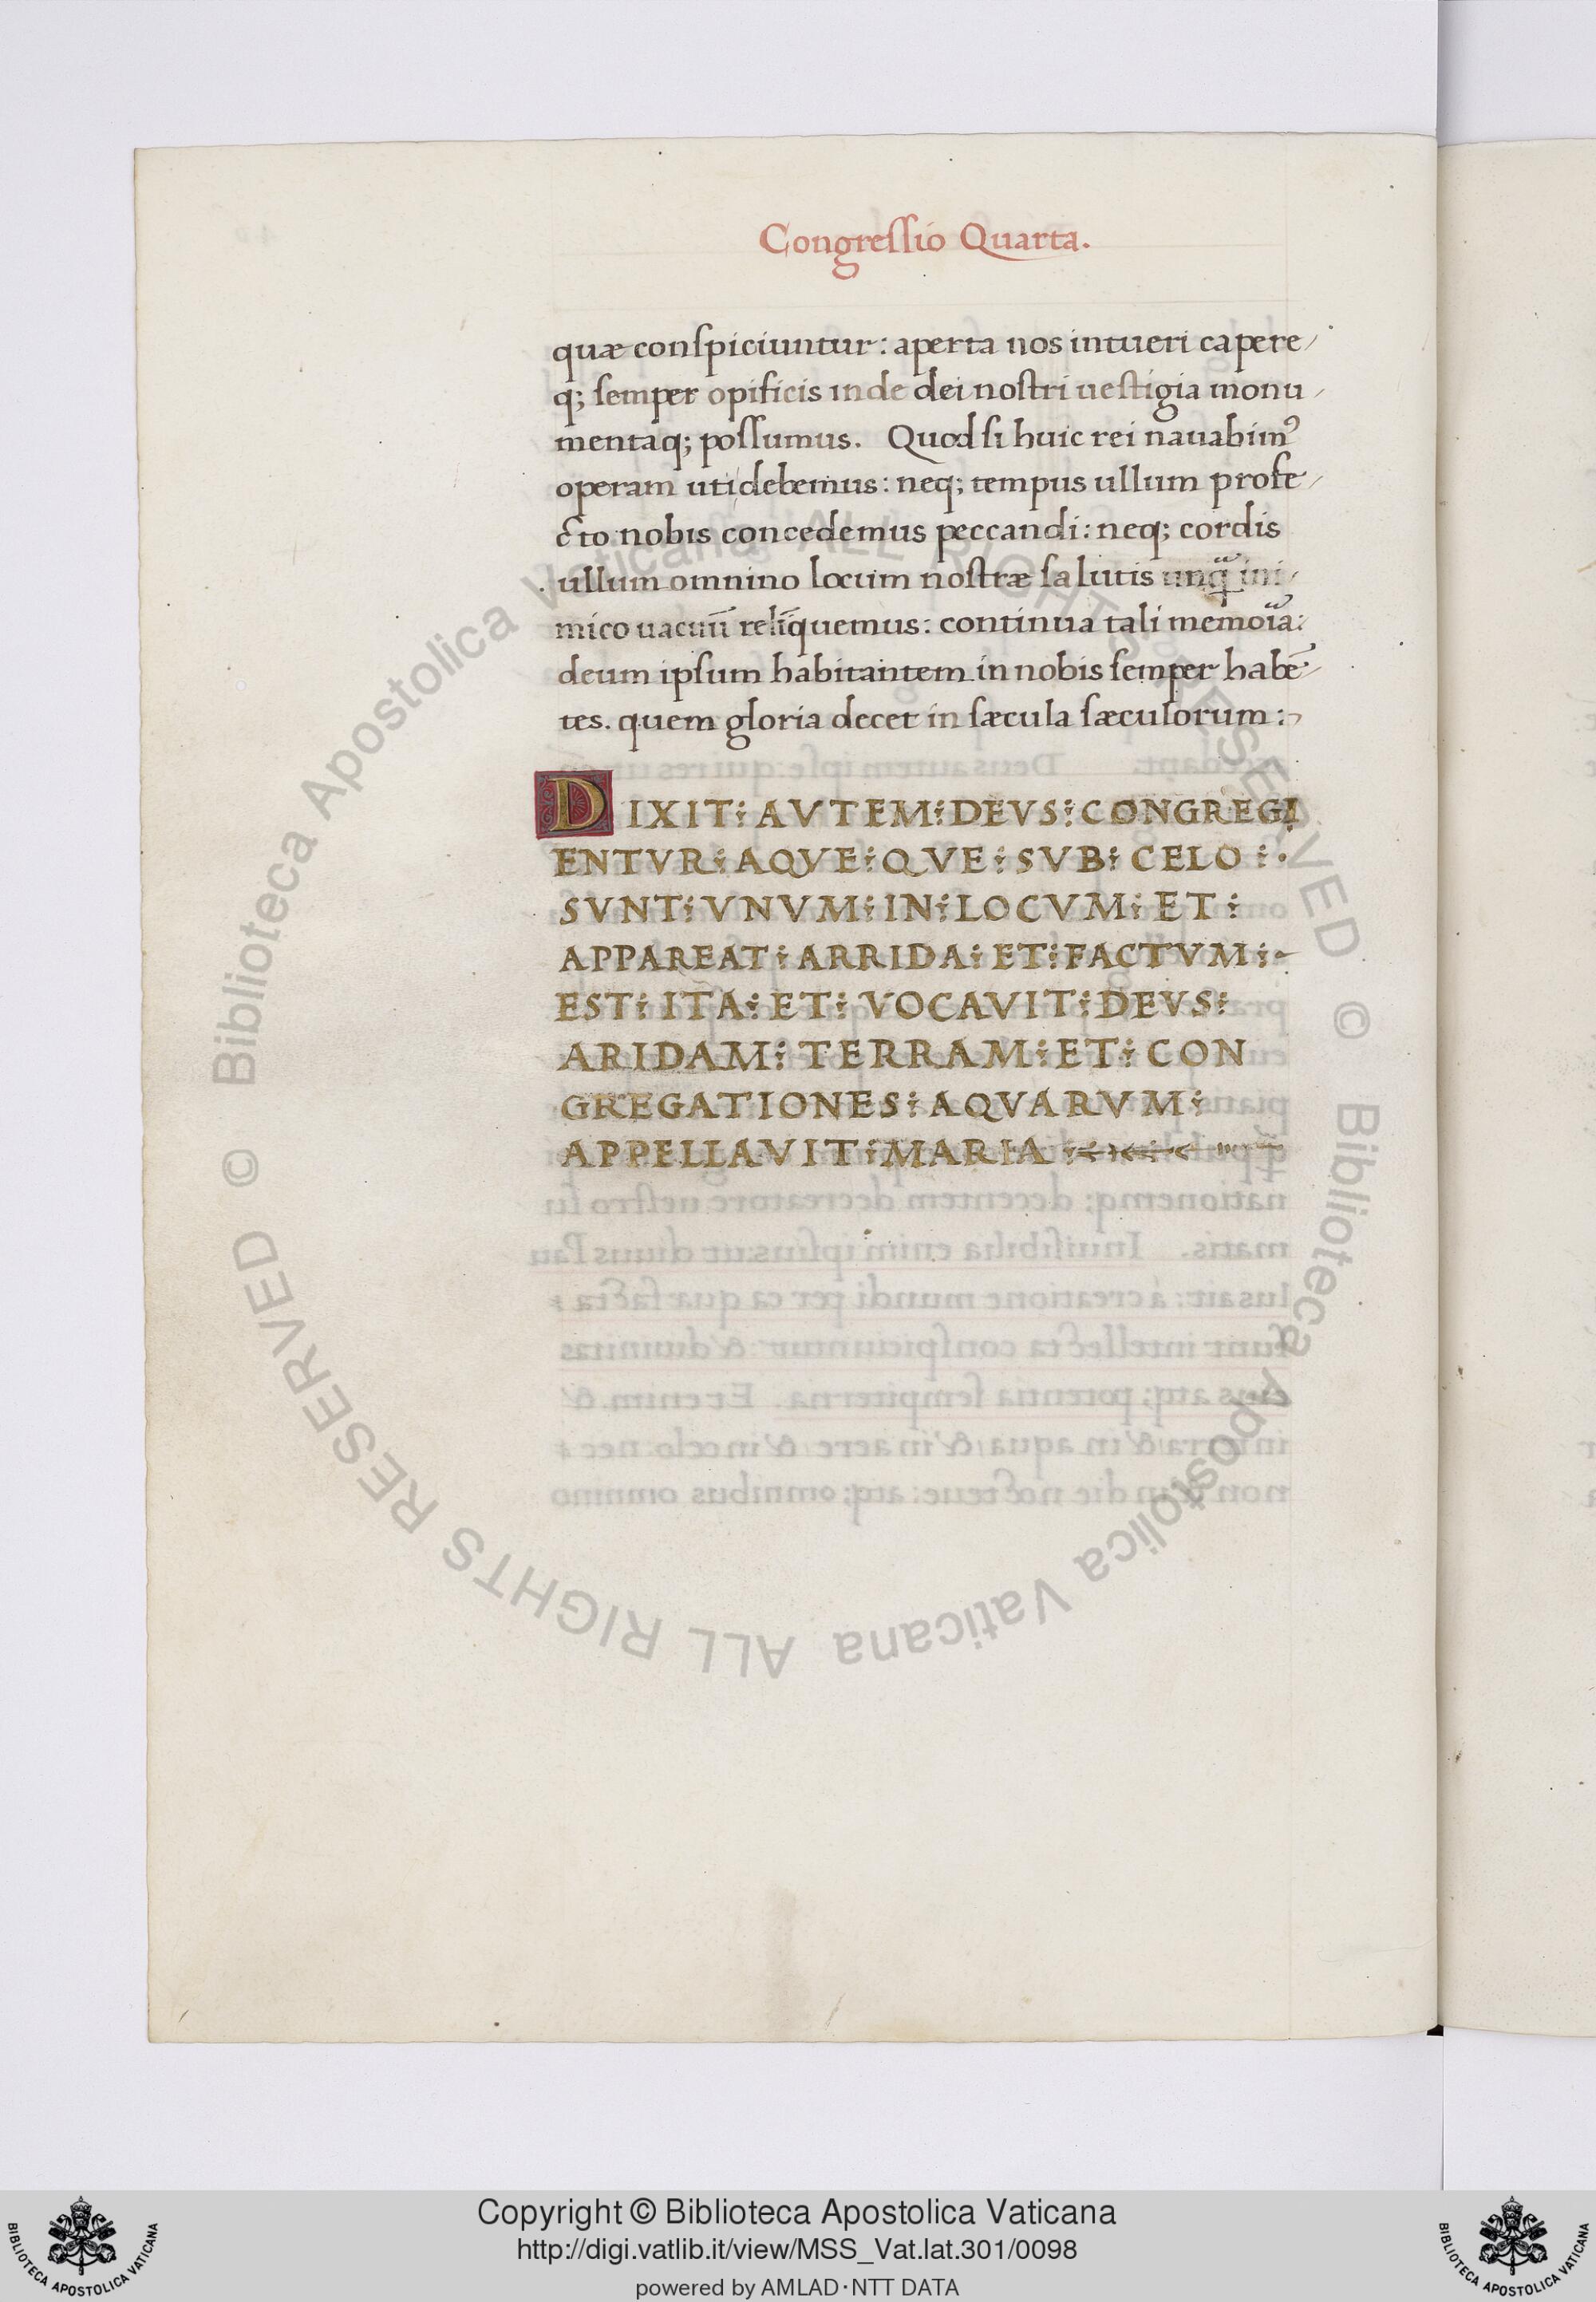 Congressio Quarta.
quæ conspiciuntur: aperta nos intueri capere
q; semper opificis inde dei nostri uestigia monu
mentaq; possumus. Quod si huic rei nauabim⁹
operam uti debemus: neq; tempus ullum profe
cto nobis concedemus peccandi: neq; cordis
ullum omnino locum nostræ salutis unq̃ ini
mico uacuū relīquemus: continua tali memoıa:
deum ipsum habitantem in nobis semper habē
tes. quem gloria decet in sæcula sæculorum:
DIXIT: AVTEM: DEVS: CONGREGA
ENTVR: AQVE: QVE: SVB: CELO:
SVNT: VNVM: IN: LOCVM: ET:
APPAREAT: ARRIDA: ET: FACTVM:
EST: ITA: ET: VOCAVIT: DEVS:
ARIDAM: TERRAM: ET: CON
GREGATIONES: AQVARVM:
APPELLAVIT: MARIA
© Biblioteca Apostolica Vaticana ALL RIGHTS RESERVED © Biblioteca Apostolica Vaticana ALL RIGHTS RESERVED
Copyright © Biblioteca Apostolica Vaticana
http://digi.vatlib.it/view/MSS_Vat.lat.301/0098
powered by AMLAD·NTT DATA
BIBLIOTECA APOSTOLICA VATICANA
BIBLIOTECA APOSTOLICA VATICANA